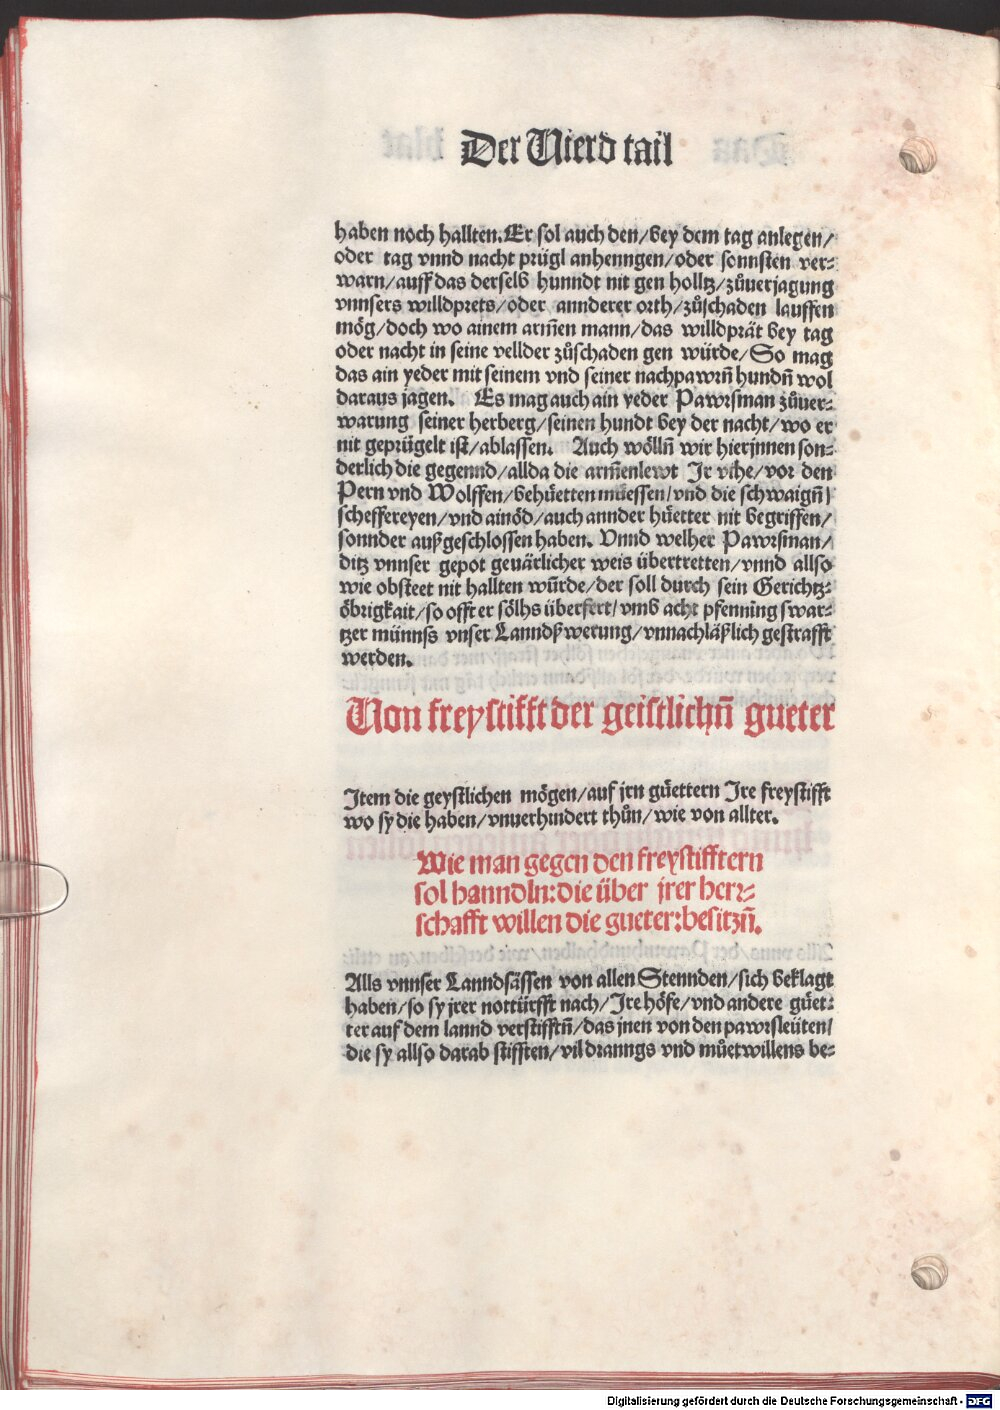 Der Vierd tail
haben noch hallten. Er sol auch den/bey dem tag anlegen/
oder tag vnnd nacht prügl anhenngen/oder sonnsten ver⸗
warn/auff das derselb hunndt nit gen holltz/zůuerjagung
vnnsers willdprets/oder annderer orth/zůschaden lauffen
mög/doch wo ainem arm̃en mann/das willdprät bey tag
oder nacht in seine vellder zůschaden gen würde/So mag
das ain yeder mit seinem vnd seiner nachpawrñ hundñ wol
daraus jagen. Es mag auch ain yeder Pawrsman zůuer⸗
warung seiner herberg/seinen hundt bey der nacht/wo er
nit geprügelt ist/ablassen. Auch wöllñ wir hierjnnen son⸗
derlich die gegennd/allda die arm̃enlewt Ir vihe/vor den
Pern vnd Wolffen/behüetten müessen/vnd die schwaigñ/
scheffereyen/vnd ainöd/auch annder hüetter nit begriffen/
sonnder außgeschlossen haben. Vnnd welher Pawrsman/
ditz vnnser gepot geuärlicher weis übertretten/vnnd allso
wie obsteet nit hallten wurde/der soll durch sein Gerichtz⸗
öbrigkait/so offt er sölhs überfert/vmb acht pfenning swar⸗
tzer münnss vnser Lanndß werung/vnnachläßlich gestrafft
werden.
Von freystifft der geistlichñ gueter
Item die geystlichen mögen/auf jrn güettern Ire freystifft
wo sy die haben/vnuerhindert thůn/wie von allter.
Wie man gegen den freystifftern
sol hanndln:die über jrer herr⸗
schafft willen die gueter:besitzñ.
Alls vnnser Lanndsässen von allen Stennden/sich beklagt
haben/so sy jrer nottürfft nach/Ire höfe/vnd andere güet⸗
ter auf dem lannd verstifftñ/das jnen von den pawrsleüten/
die sy allso darab stifften/vil dranngs vnd můetwillens be⸗
Digitalisierung gefördert durch die Deutsche Forschungsgemeinschaft - DFG